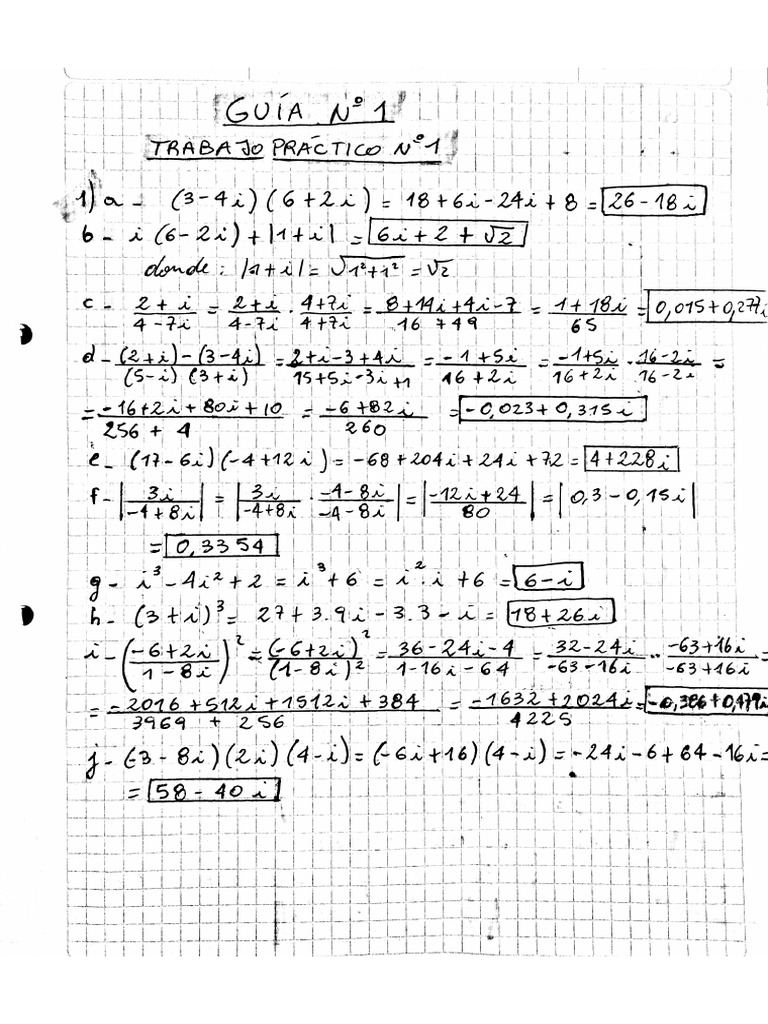 GUÍA Nº1
TRABAJO PRÁCTICO Nº1
1) a - (3-4i)(6+2i) = 18+6i-24i+8 = 26-18i
b - i(6-2i)+|1+i| = 6i+2+√2
donde: |1+i| = √(1²+1²) = √2
c - (2+i)/(4-7i) = (2+i)/(4-7i) · (4+7i)/(4+7i) = (8+14i+4i-7)/(16+49) = (1+18i)/65 = 0,015+0,277i
d - ((2+i)-(3-4i))/((5-i)(3+i)) = (2+i-3+4i)/(15+5i-3i+1) = (-1+5i)/(16+2i) = (-1+5i)/(16+2i) · (16-2i)/(16-2i) =
= (-16+2i+80i+10)/(256+4) = (-6+82i)/260 = -0,023+0,315i
e - (17-6i)(-4+12i) = -68+204i+24i+72 = 4+228i
f - |3i/(-4+8i)| = |3i/(-4+8i) · (-4-8i)/(-4-8i)| = |(-12i+24)/80| = |0,3-0,15i|
= 0,3354
g - i³-4i²+2 = i³+6 = i²·i+6 = 6-i
h - (3+i)³ = 27+3.9i-3.3-i = 18+26i
i - ((-6+2i)/(1-8i))² = (-6+2i)²/(1-8i)² = (36-24i-4)/(1-16i-64) = (32-24i)/(-63-16i) · (-63+16i)/(-63+16i) =
= (-2016+512i+1512i+384)/(3969+256) = (-1632+2024i)/4225 = -0,386+0,479i
j - (-3-8i)(2i)(4-i) = (-6i+16)(4-i) = -24i-6+64-16i =
= 58-40i